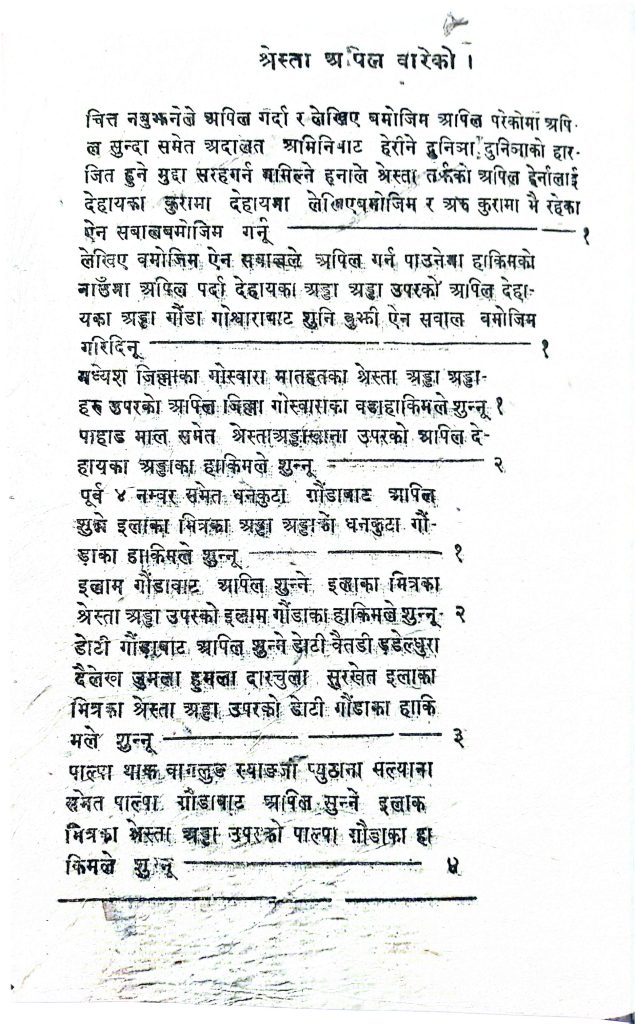 श्रेस्ता अपिल वारेको ।
चित्त नबुझनेले अपिल गर्दा र लेखिए बमोजिम अपिल परेकोमा अपि-
ल सुन्दा समेत अदालत अमिनिबाट हेरीने दुनिञा दुनिञाको हार-
जित हुने मुद्दा सरहगर्न नमिल्ने हुनाले श्रेस्ता तर्फको अपिल हेर्नालाई
देहायका कुरामा देहायमा लेखिएबमोजिम र अरु कुरामा भै रहेका
ऐन सबालबमोजिम गर्नू — १
लेखिए बमोजिम ऐन सबालले अपिल गर्न पाउनेमा हाकिमको
नाउँमा अपिल पर्दा देहायका अड्डा अड्डा उपरको अपिल देहा-
यका अड्डा गौंडा गोश्वाराबाट शुनि बुझी ऐन सवाल बमोजिम
गरिदिनू — १
मध्येश जिल्लाका गोस्वारा मातहतका श्रेस्ता अड्डा अड्डा-
हरु उपरको अपिल जिल्ला गोस्वाराका बडाहाकिमले शुन्नू १
पाहाड माल समेत श्रेस्ताअड्डाखाना उपरको अपिल दे-
हायका अड्डाका हाकिमले शुन्नू — २
पूर्व ४ नम्वर समेत धनकुटा गौंडाबाट अपिल
शुन्ने इलाका भित्रका अड्डा अड्डाको धनकुटा गौं-
डाका हाकिमले शुन्नू — १
इलाम गौंडावाट अपिल शुन्ने इलाका भित्रका
श्रेस्ता अड्डा उपरको इलाम गौंडाका हाकिमले शुन्नू- २
डोटी गौंडाबाट अपिल शुन्ने डोटी वैतडी डडेल्धुरा
दैलेख जुमला हुमला दारचुला सुरखेत इलाका
भित्रका श्रेस्ता अड्डा उपरको डोटी गौंडाका हाकि
मले शुन्नू — ३
पाल्पा थाक वागलुङ स्याङजा प्युठाना सल्याना
समेत पाल्पा गौंडाबाट अपिल सुन्ने इलाक
भित्रका श्रेस्ता अड्डा उपरको पाल्पा गौंडाका हा
किमले शुन्नू — ४